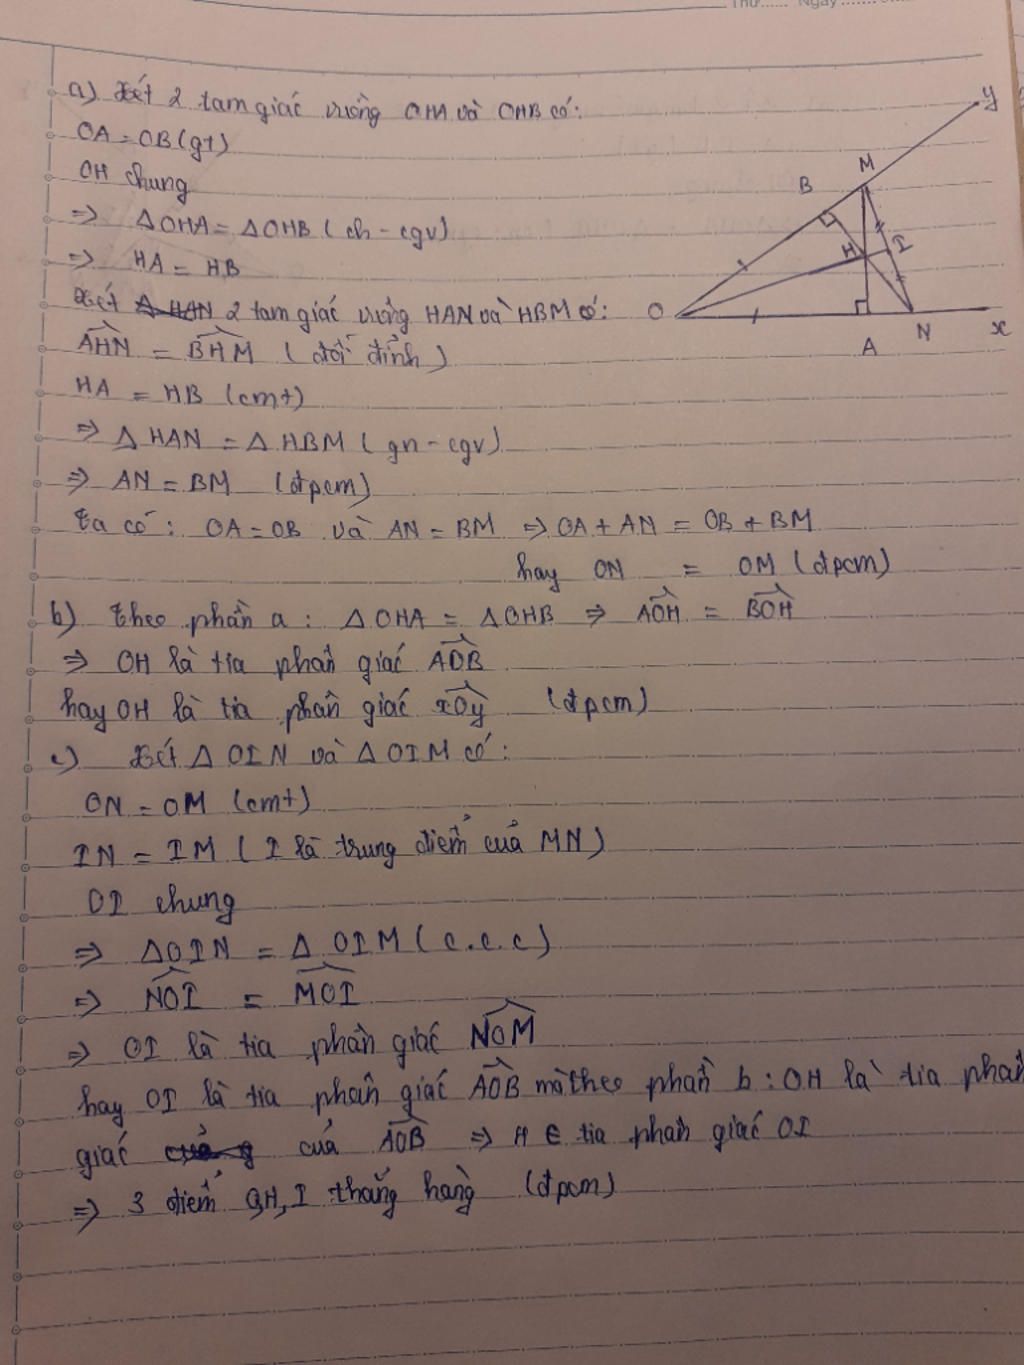 Thứ...... Ngày.......
a) Xét 2 tam giác vuông OHA và OHB có:
OA = OB (gt)
OH chung
=> ΔOHA = ΔOHB (ch - cgv)
=> HA = HB
Xét 2 tam giác vuông HAN và HBM có:
AHN = BHM (đối đỉnh)
HA = HB (cmt)
=> Δ HAN = Δ HBM (gn - cgv)
=> AN = BM (đpcm)
Ta có: OA = OB và AN = BM => OA + AN = OB + BM
hay ON = OM (đpcm)
b) Theo phần a: ΔOHA = ΔOHB => AOH = BOH
=> OH là tia phân giác AOB
hay OH là tia phân giác xOy (đpcm)
c) Xét Δ OIN và Δ OIM có:
ON = OM (cmt)
IN = IM (I là trung điểm của MN)
OI chung
=> ΔOIN = Δ OIM (c.c.c)
=> NOI = MOI
=> OI là tia phân giác NOM
hay OI là tia phân giác AOB mà theo phần b: OH là tia phân
giác của AOB => H ∈ tia phân giác OI
=> 3 điểm O,H,I thẳng hàng (đpcm)
y
M
B
I
H
O
A
N
x